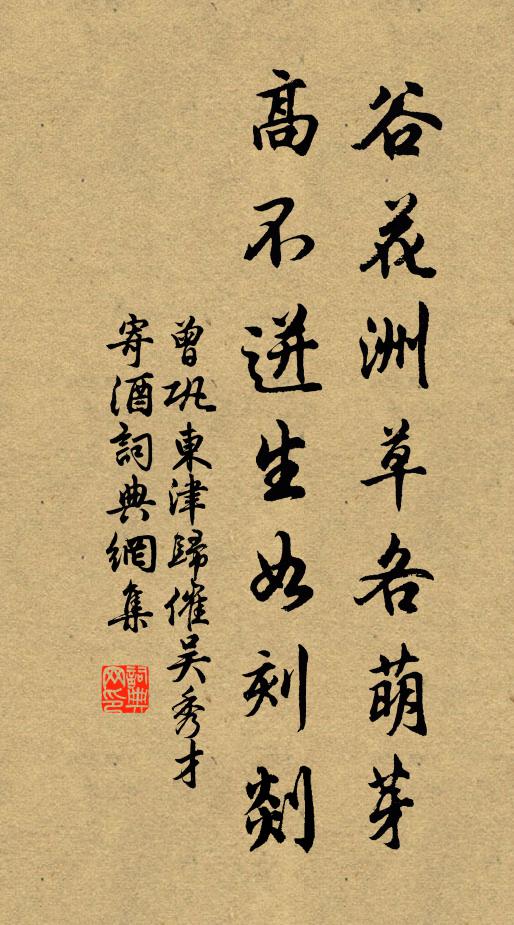 谷花洲草各萌芽
高不迸生如刻剡
曾巩東津歸催吴秀才
寄酒詞典網集
詞典
网印